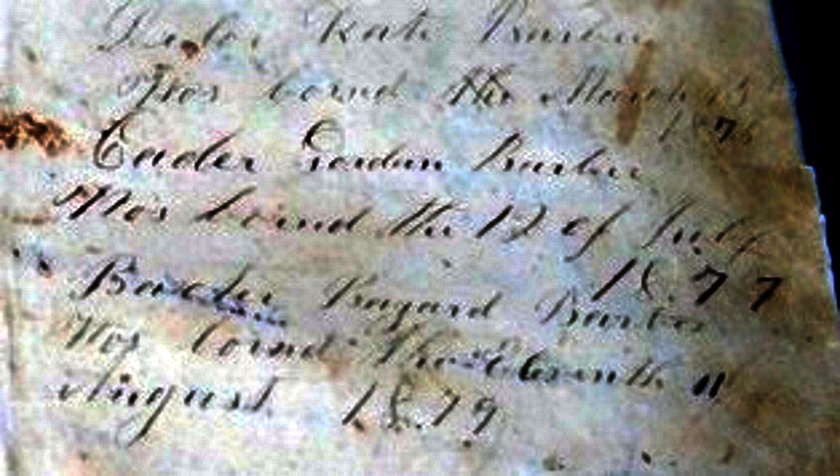 Kate
Was bornd the March 13
187
Eader Gordan Barbee
Was bornd the 12 of July
18.77
Baeder Bagard Barbee
Was bornd the eleventh 11
August 1879